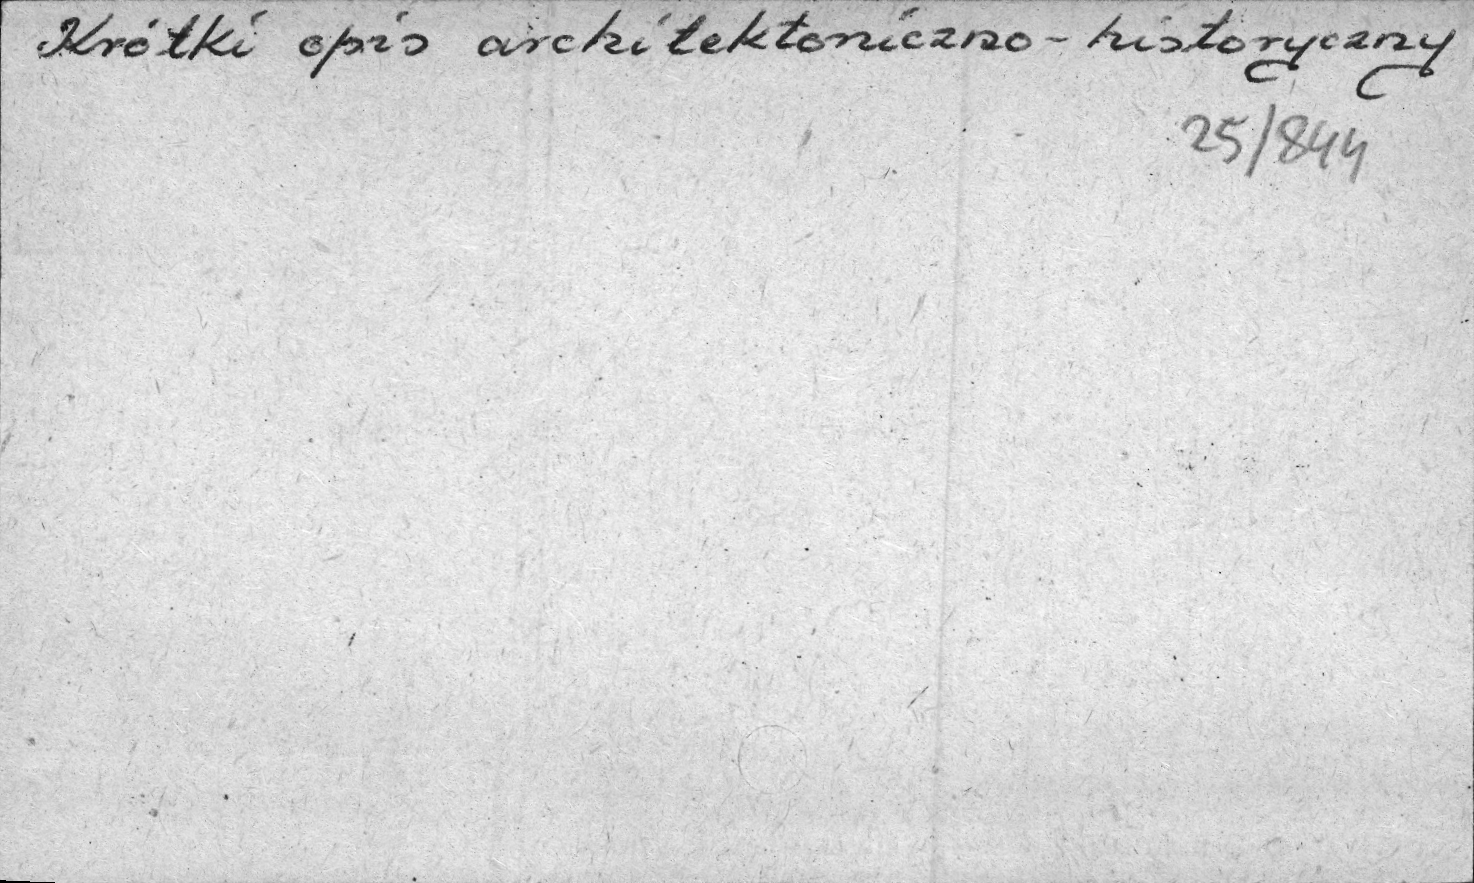 Krótki opis architektoniczno-historyczny
25/844